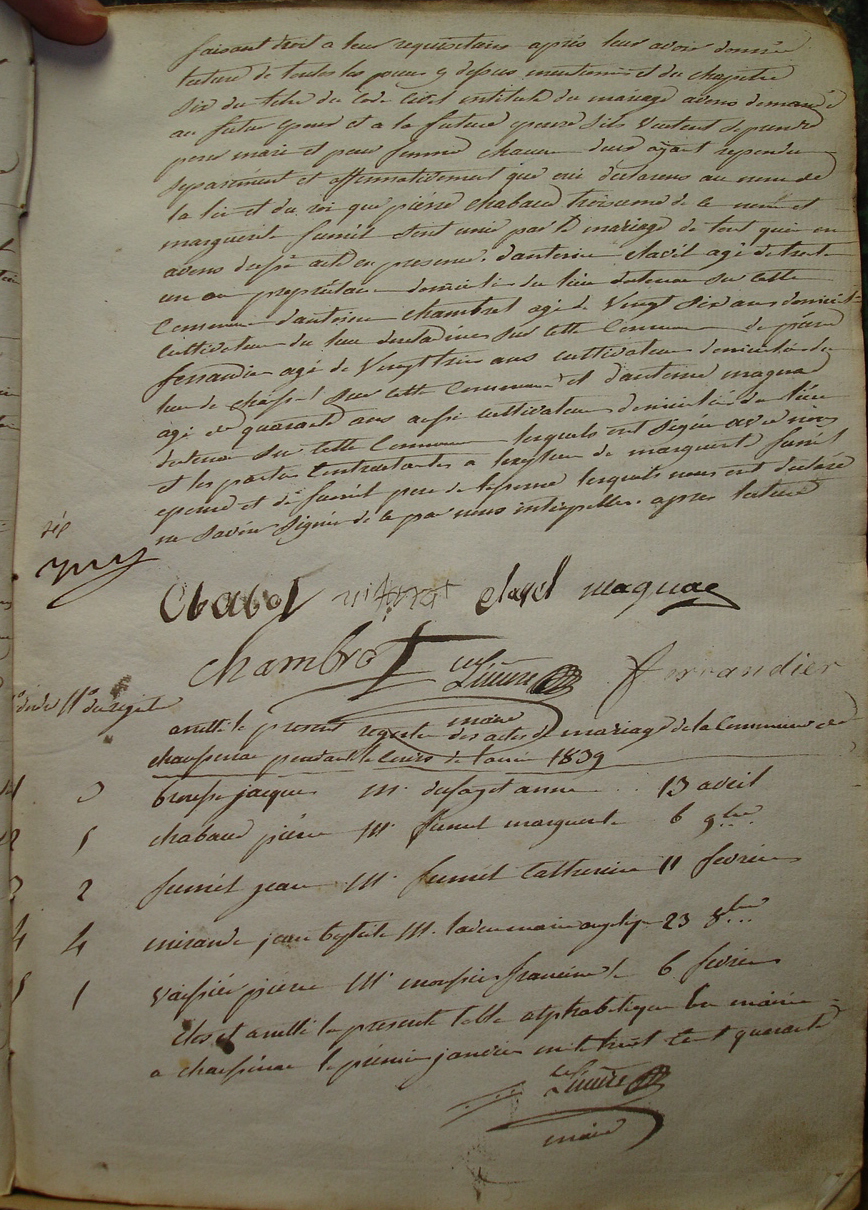 faisant droit a leur requisitoire après leur avoir donnée
lecture de toutes les pieces cy dessus mentionnés et du chapitre
six du titre du code civil intitulé du mariage avons demandé
au futur epoux et a la future epouse s'ils veulent se prendre
pour mari et pour femme chacun deux ayant repondu
separément et affirmativement que oui declarons au nom de
la loi et du roi que pierre chabaud troisieme de ce nom et
marguerite fumel sont unis par le mariage de tout quoi en
avons dressé acte en presence d'antoine clavel agé de trente
un an proprietaire domicilié du lieu sur cette
Commune d'antoine chambret agé de Vingt six ans domicilié
Cultivateur du lieu sur cette Commune de pierre
ferrandier agé de Vingt trois ans cultivateur domicilié du
lieu de sur cette Commune et d'antoine magnac
agé de quarante ans aussi cultivateur domicilié du lieu
sur cette Commune lesquels ont signé avec nous
et les parties Contractantes a de marguerite fumel
epouse et de fumel pere de lepouse lesquels nous ont declaré
ne savoir signer de ce par nous interpellés. après lecture
Chabot clavel magnac
chambret ferrandier
maire
arretté le present registre des actes de mariage de la Commune de
pendant le cours de l'année 1839
3 brousse jacques M. anne 13 avril
5 chabaud pierre M. fumel marguerite 6 9bre
2 fumel jean M. fumel Catherine 11 fevrier
4 4 mirande jean baptiste M. marie angelique 23 8bre
1 pierre M. 6 fevrier
clos et arretté la presente table alphabetique
a le premier janvier mil huit cent quarante
maire